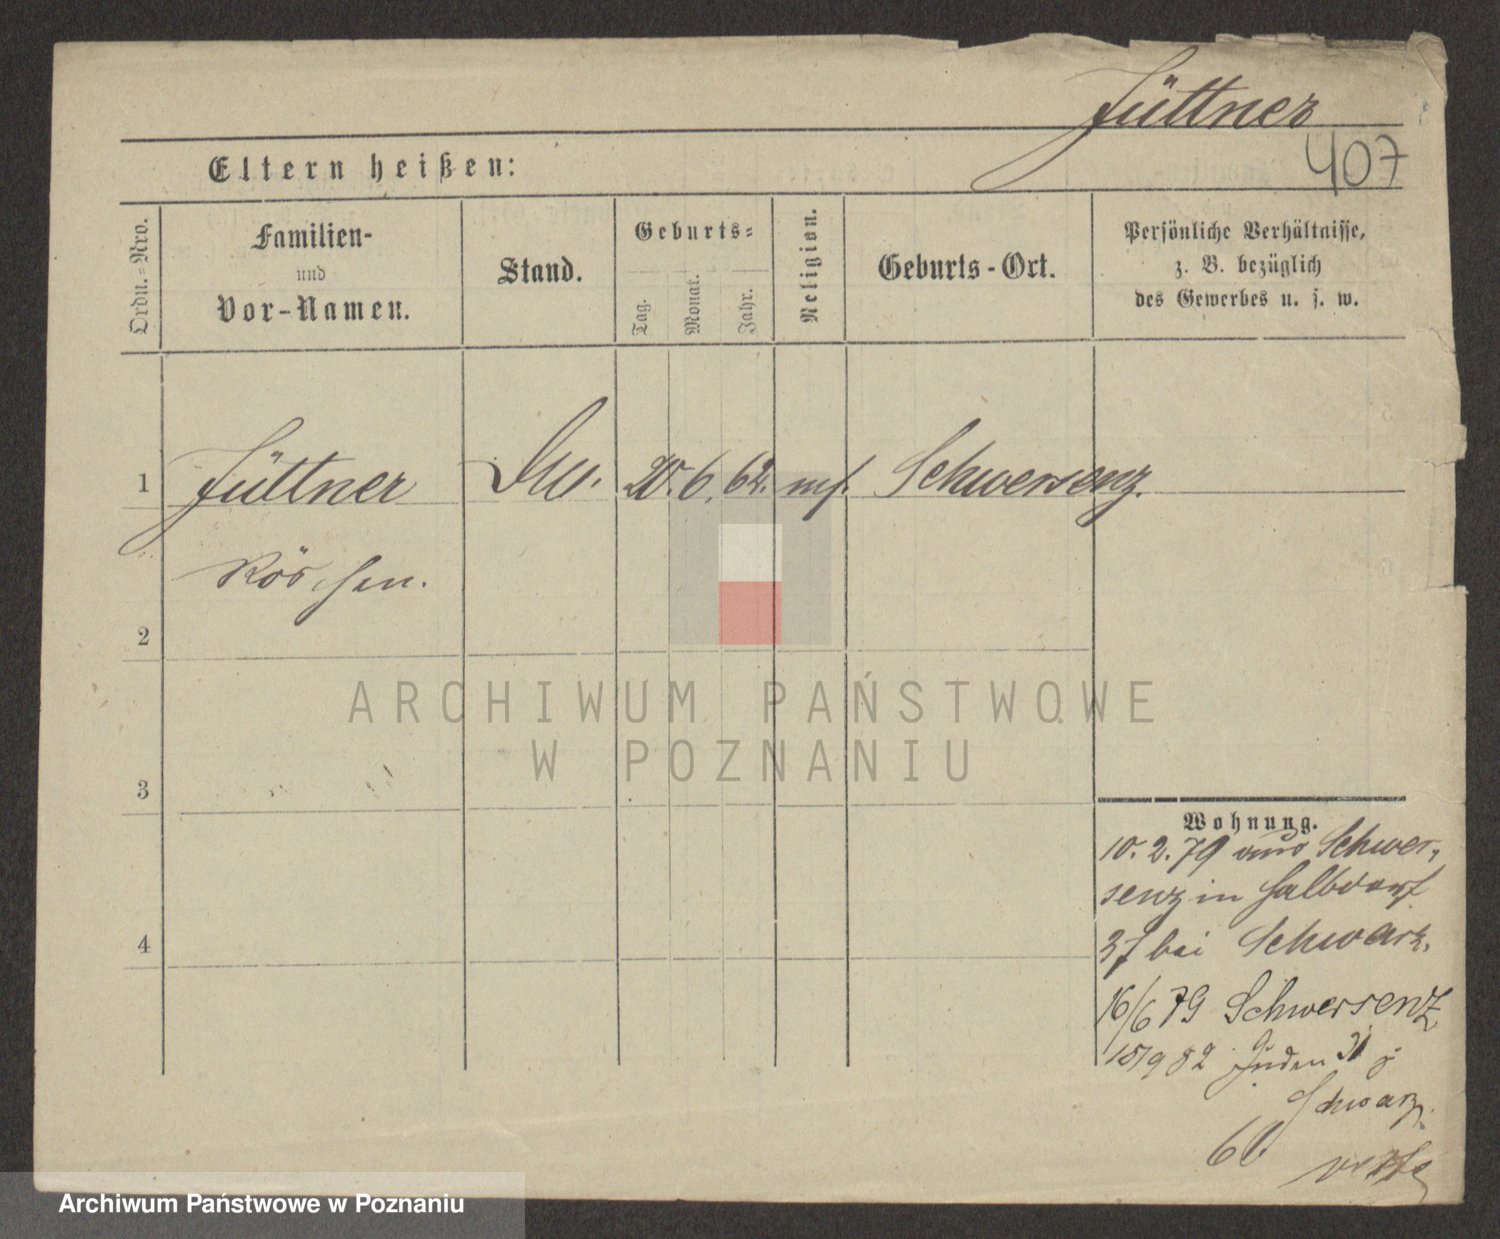 Jüttner
407
Eltern heißen:
Ordn.-Nro.
Familien-
und
Vor-Namen.
Stand.
Geburts-
Tag.
Monat.
Jahr.
Religion.
Geburts-Ort.
Persönliche Verhältnisse,
z. B. bezüglich
des Gewerbes u. s. w.
1 Jüttner 20. 6. 62. Schwersenz.
Röschen.
2
3
4
ARCHIWUM PAŃSTWOWE
W POZNANIU
Wohnung.
10. 2. 79 aus Schwer-
senz in Halbdorf
37 bei Schwarz.
16/6 79 Schwersenz
15/9 82 Juden 31
Schwarz.
Archiwum Państwowe w Poznaniu